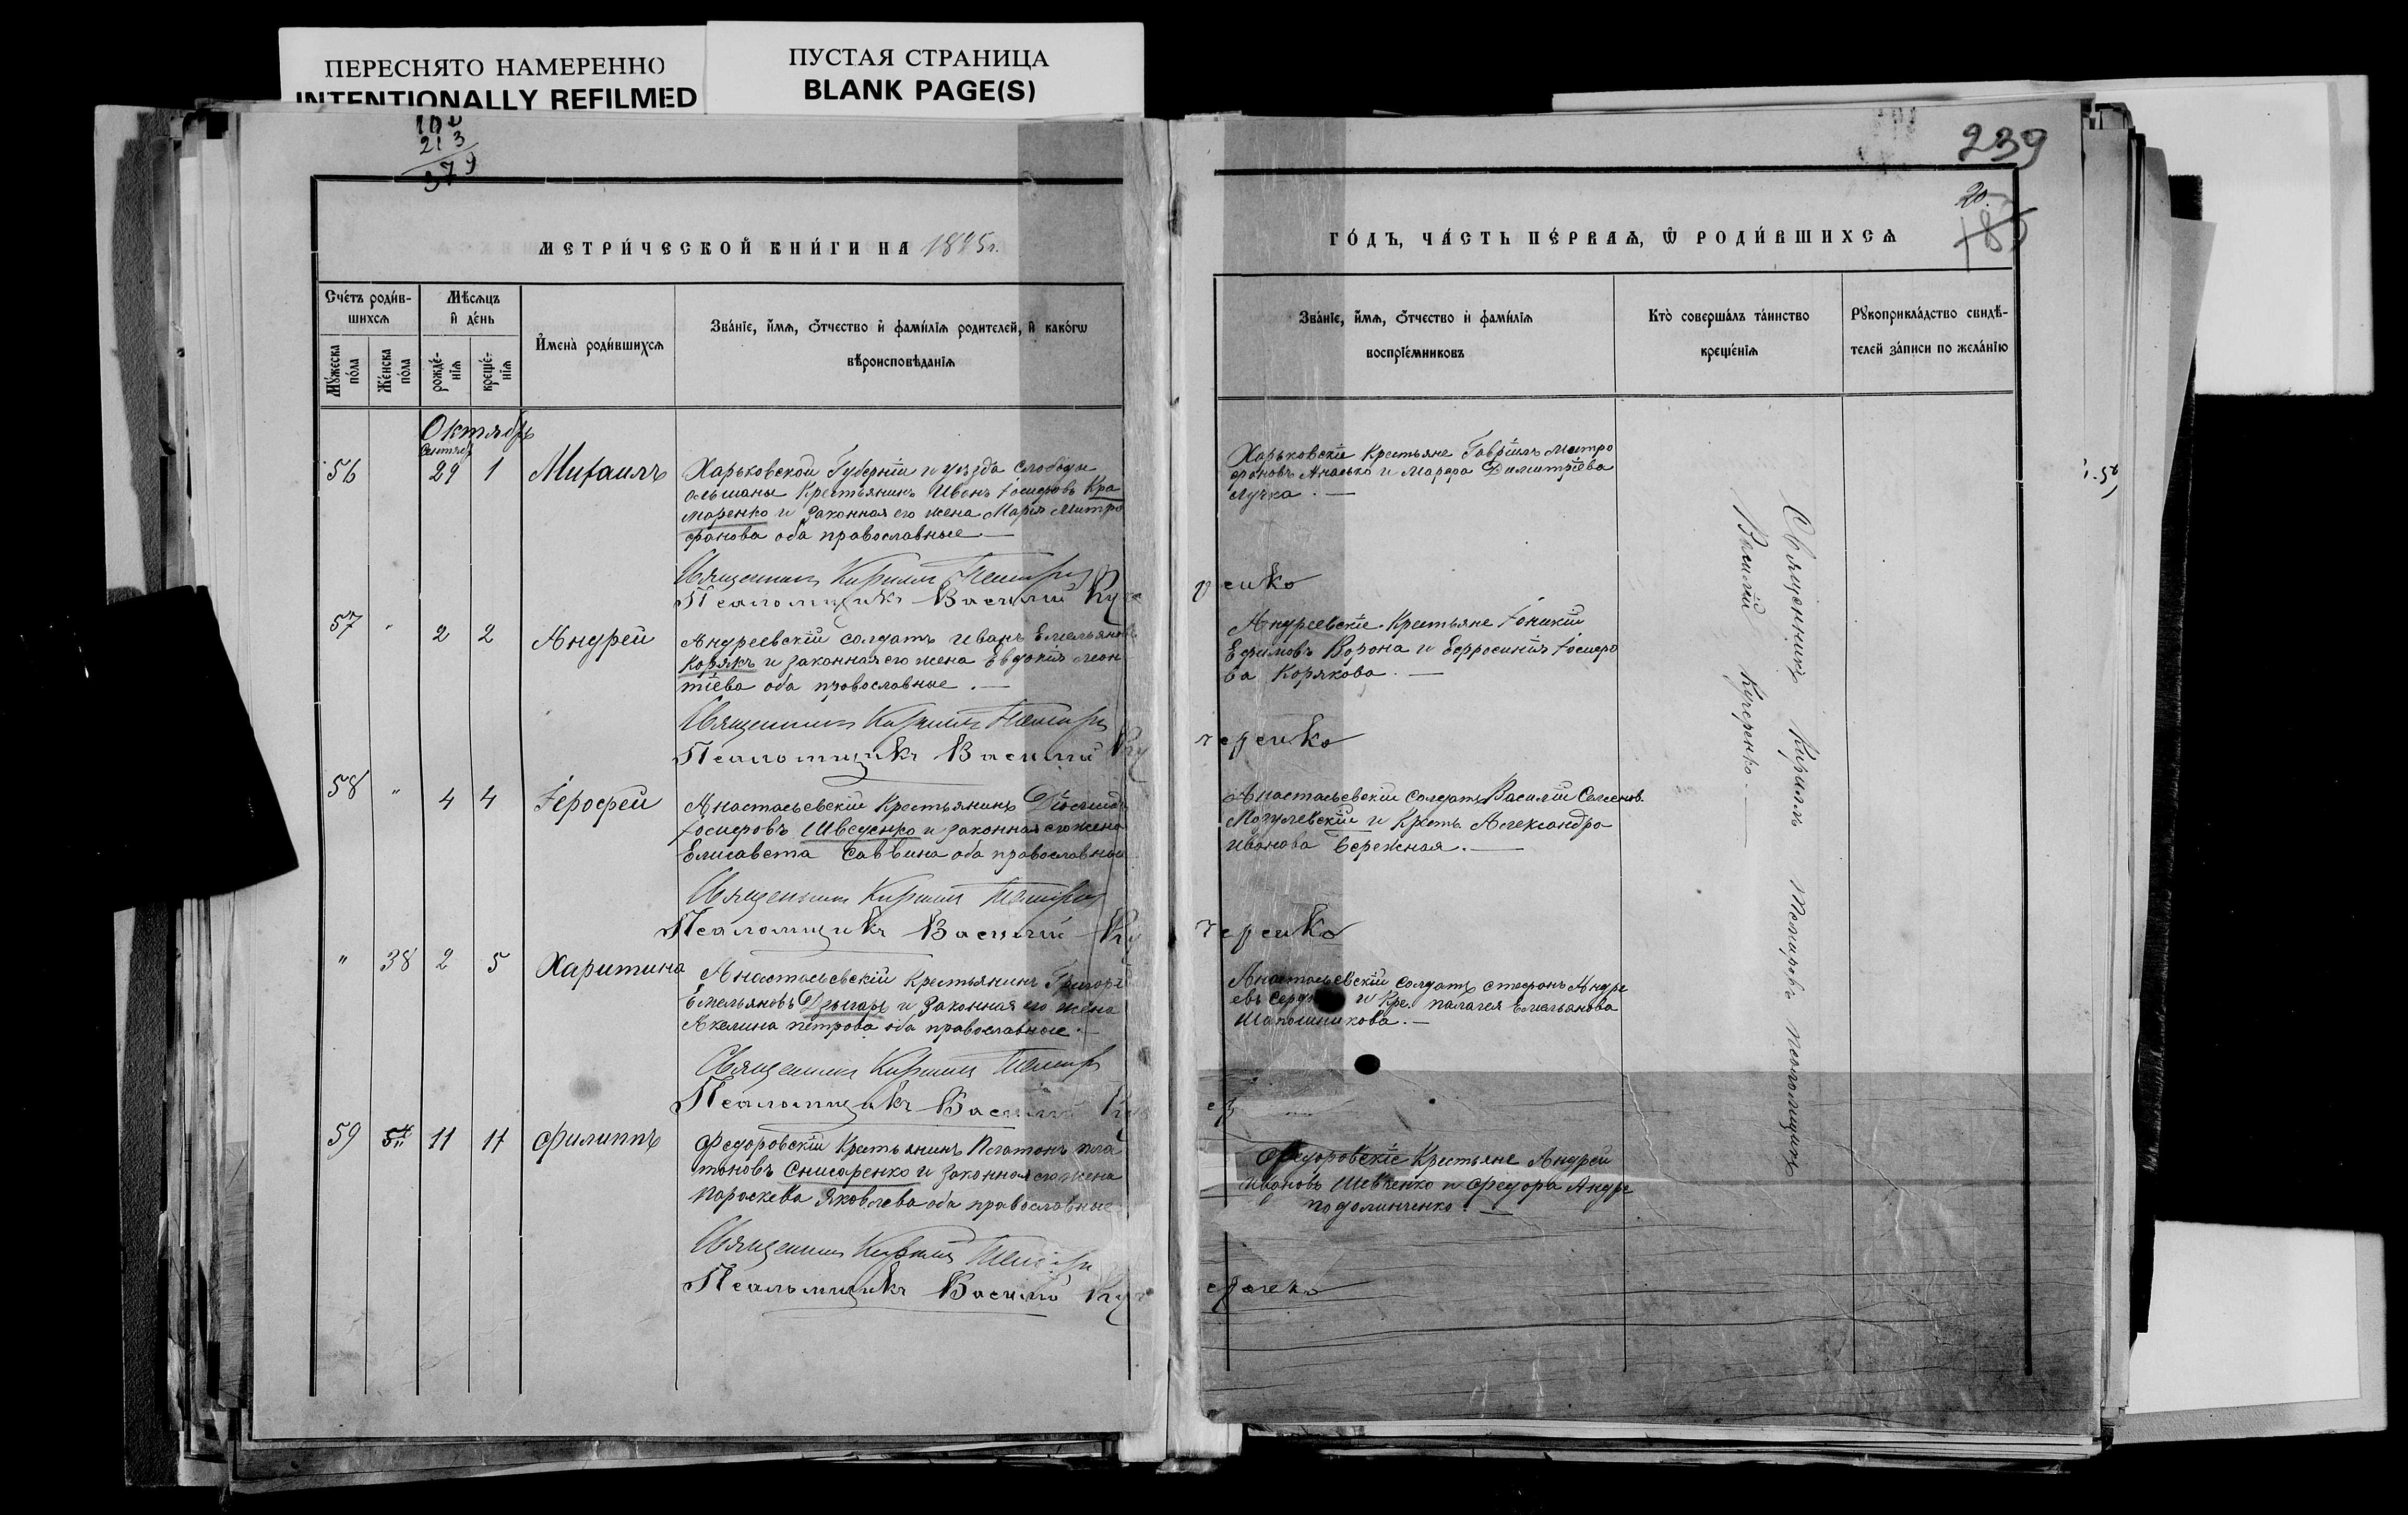 ПЕРЕСНЯТО НАМЕРЕННО
INTENTIONALLY REFILMED
ПУСТАЯ СТРАНИЦА
BLANK PAGE(S)
213
379
239
20.
МЕТРИ́ЧЕСКОЙ КНИ́ГИ НА 1895 г.
ГО́ДЪ, ЧА́СТЬ ПЕ́РВАѦ, Ѿ РОДИ́ВШИХСѦ
Сче́тъ роди́в-
шихсѧ
Мѣ́сѧцъ
и҆ де́нь
Мꙋ́жеска
по́ла
Же́нска
по́ла
рожде́-
нїѧ
креще́-
нїѧ
И҆мена̀ роди́вшихсѧ
Зва́нїе, и҆́мѧ, ѻ҆́тчество и҆ фамѝлїѧ родителей, и҆ како́гѡ
вѣроисповѣ́данїѧ
Зва́нїе, и҆́мѧ, ѻ҆́тчество и҆ фами́лїѧ
воспрїе́мниковъ
Кто̀ соверша́лъ та́инство
креще́нїѧ
Рꙋкоприкла́дство свидѣ́-
телей за́писи по жела́нїю
Октябрь
Сентяб.
56 29 1 Михаилъ
Харьковской Губерніи и уезда слободы
ольшаны Крестьянинъ Иванъ Іосифовъ Кра
маренко и законная его жена Марія Митро
фанова оба православные
Харьковскіе Крестьяне Гавріилъ Митро
фановъ и Марфа Димитріева
Лучка.
Священникъ Кирилл
Псаломщикъ Василій Кучеренко
57 " 2 2 Андрей
Андреевскій солдатъ Иванъ Емельяновъ
Корякъ и законная его жена Евдокія Леон
тіева оба православные.
Андреевскіе Крестьяне Іоникій
Ефимовъ Ворона и Евфросинія Іосифо
ва Корякова.
Священникъ Кирилл
Псаломщикъ Василій Кучеренко
58 " 4 4 Іерофей
Анастасьевскій Крестьянинъ Діомид
Іосифовъ Шведенко и законная его жена
Елисавета Саввина оба православные
Анастасьевскій солдатъ Василій Семенов.
Могулевскій и Крест. Александра
Иванова Бережная.
Священникъ Кирилл
Псаломщикъ Василій Кучеренко
" 38 2 5 Харитина
Анастасьевскій Крестьянинъ Григорій
Емельяновъ Дзыгарь и законная его жена
Акелина Петрова оба православные.
Анастасьевскій солдатъ Стефанъ Андре
евъ и Кре. Палагея Емельянова
Шапошникова.
Священникъ Кирилл
Псаломщикъ Василій
59 11 11 Филиппъ
Федоровскій Крестьянинъ Платонъ Пла
тоновъ Снисаренко и законная его жена
Параскева Яковлева оба православные
Федоровскіе Крестьяне Андрей
Ивановъ Шевченко и Федора Андре
Подолинченко.
Священникъ Кирилл
Псаломщикъ Василій
Священникъ Кириллъ псаломщикъ
Василій Кучеренко.